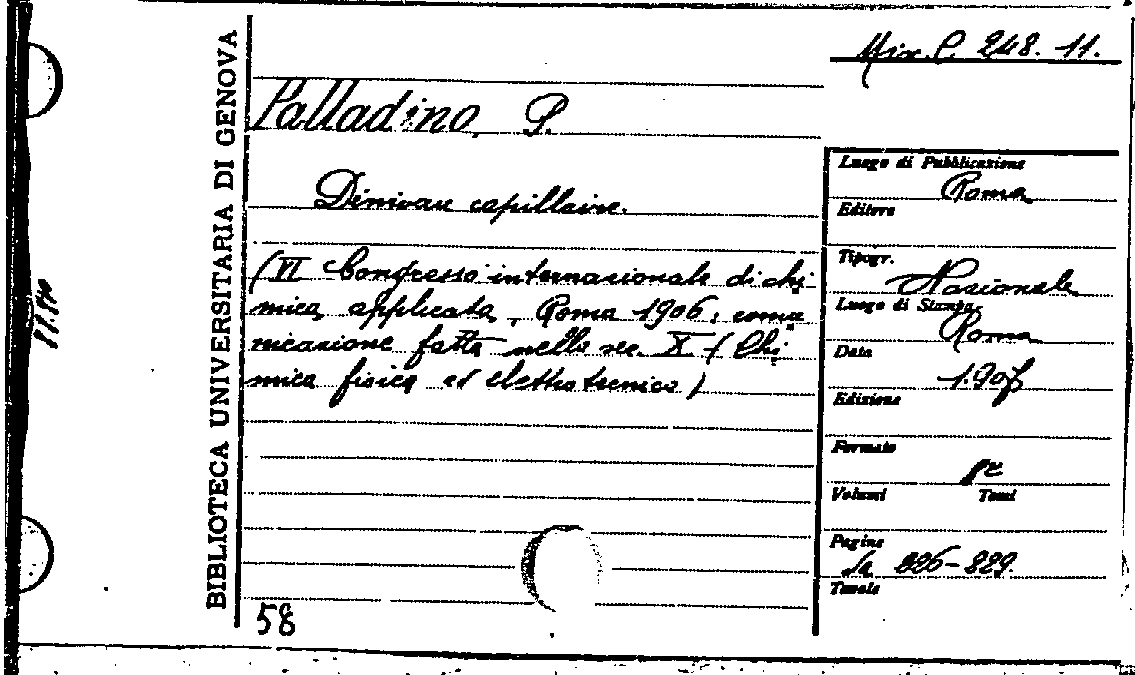 BIBLIOTECA UNIVERSITARIA DI GENOVA
248. 11.
Palladino, P.
capillaire.
(VI Congresso internazionale di chi
mica applicata, Roma 1906. comu
nicazione fatta nella sec. X - (Chi
mica fisica ed elettrotecnica)
58
Luogo di Pubblicazione
Roma
Editore
Tipogr.
Nazionale
Luogo di Stampa
Roma
Data
1907
Edizione
Formato
Volumi Tomi
Pagine
da 226-229
Tavole